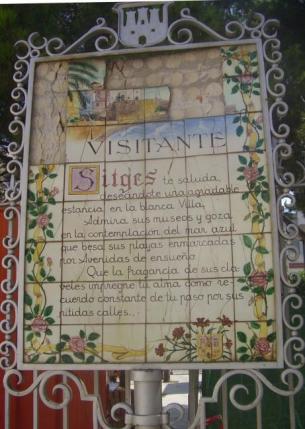 VISITANTE
Sitges te saluda,
deseándote una agradable
estancia en la blanca Villa,
Admira sus museos y goza
en la contemplación del mar azul
que besa sus playas enmarcadas
por Avenidas de ensueño.
Que la fragancia de sus cla-
veles impregne tu alma como re-
cuerdo constante de tu paso por sus
nítidas calles...